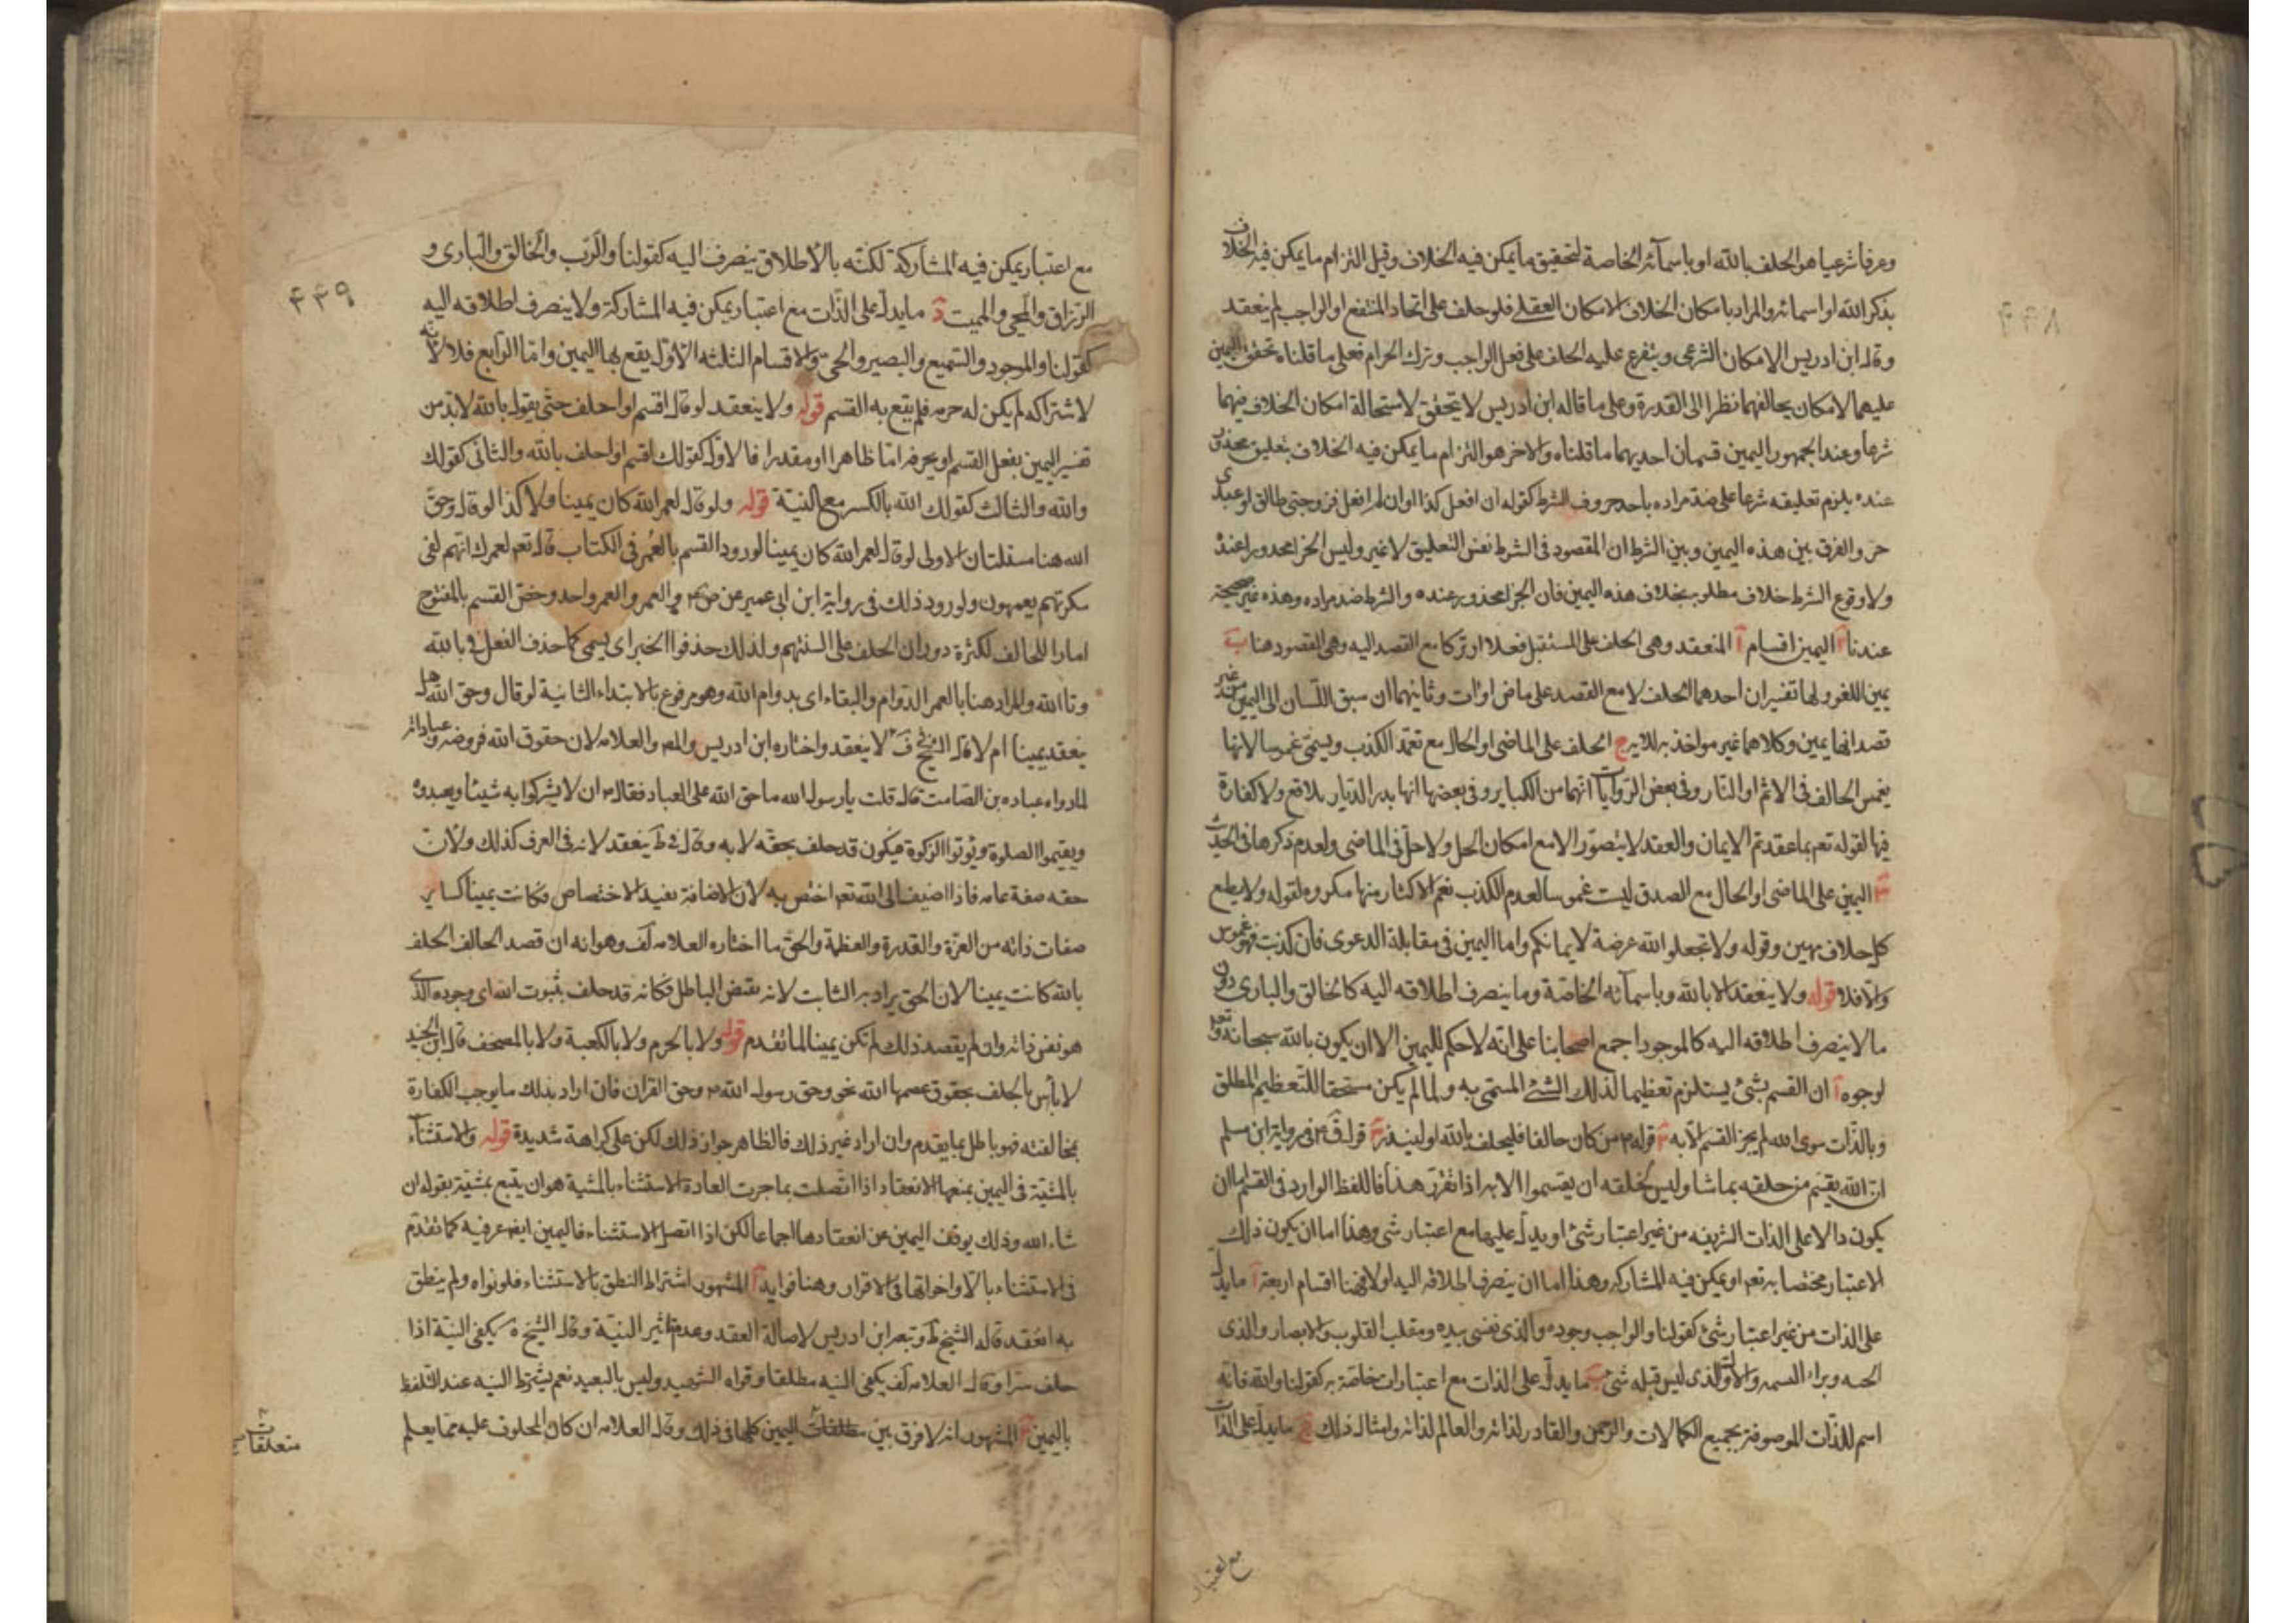 وعرفا شرعيا هو الحلف بالله او باسمائه الخاصة لتحقيق ما يمكن فيه الخلاف وقيل التزام ما يمكن فيه الخلاف
بذكر الله او اسمائه والمراد بامكان الخلاف الامكان العقلي فلو حلف على اتحاد الممتنع او الواجب لم ينعقد
وقال ابن ادريس الامكان الشرعى ويتفرع عليه الحلف على فعل الواجب وترك الحرام فعلى ما قلناه تحقق اليمين
عليهما لامكان يخالفهما نظرا الى القدرة وعلى ما قاله ابن ادريس لا يتحقق لاستحالة امكان الخلاف فيهما
شرعا وعند الجمهور اليمين قسمان احديهما ما قلناه والاخر هو التزام ما يمكن فيه الخلاف بتعليق محذور
عنده يلزم تعليقه شرعا على ضد مراده باحد حروف الشرط كقوله ان افعل كذا او ان لم افعل فزوجتى طالق او عبدى
حر والفرق بين هذه اليمين وبين الشرط ان المقصود فى الشرط نفس التعليق لا غير وليس الجزا محذورا عنده
ولا وقوع الشرط خلاف مطلوبه بخلاف هذه اليمين فان الجزا محذور عنده والشرط ضد مراده وهذه غير صحيحة
عندنا ٢ اليمين اقسام آ المنعقد وهى الحلف على المستقبل فعلا او تركا مع القصد اليه وهى المقصود هنا ب
يمين اللغو ولها تفسيران احدهما الحلف لا مع القصد على ماض او آت وثانيهما ان سبق اللسان الى اليمين من غير
قصد انها يمين وكلاهما غير مواخذ به للاية ج الحلف على الماضى او الحال مع تعمد الكذب ويسمى غموسا لانها
يغمس الحالف فى الاثم او النار وفى بعض الروايات انها من الكباير وفى بعضها انها يدر الديار بلاقع ولا كفارة
فيها لقوله تعم بما عقدتم الايمان والعقد لا يتصور الا مع امكان الحل ولا حل فى الماضى ولعدم ذكرها فى الحديث
٣ اليمين على الماضى او الحال مع الصدق ليست غموسا لعدم الكذب نعم الاكثار منها مكروه لقوله ولا يطع
كل حلاف مهين وقوله ولا تجعلوا الله عرضة لايمانكم واما اليمين فى مقابلة الدعوى فان كذبت فهو غموس
والا فلا قوله ولا ينعقد الا بالله وباسمائه الخاصة وما ينصرف اطلاقه اليه كالخالق والبارى دون
ما لا ينصرف اطلاقه اليه كالموجود اجمع اصحابنا على انه لا حكم لليمين الا ان يكون بالله سبحانه وتعم
لوجوه آ ان القسم بشئ يستلزم تعظيما لذلك الشئ المسمى به ولما لم يكن مستحقا للتعظيم المطلق
وبالذات سوى الله لم يجز القسم الا به ٢ قوله م من كان حالفا فليحلف بالله او ليذر ٣ قول ق م فى رواية ابن مسلم
ان الله يقسم من خلقه بما شا وليس لخلقه ان يقسموا الا به اذا تقرر هذا فاللفظ الوارد فى القسم اما ان
يكون دالا على الذات الشريفه من غير اعتبار شئ او يدل عليها مع اعتبار شئ وهذا اما ان يكون ذلك
الاعتبار مختصا به تعم او يمكن فيه المشاركه وهذا اما ان ينصرف اطلاقه اليه او لا فهنا اقسام اربعة آ ما يدل
على الذات من غير اعتبار شئ كقولنا والواجب وجوده والذى نفسى بيده ومقلب القلوب والابصار والذى فلق
الحبه وبرا النسمه والاول الذى ليس قبله شئ ب ما يدل على الذات مع اعتبارات خاصة به كقولنا والله فانه
اسم للذات الموصوفة بجميع الكمالات والرحمن والقادر لذاته والعالم لذاته وامثال ذلك ج ما يدل على الذات
مع اعتبار
مع اعتبار يمكن فيه المشاركة لكنه بالاطلاق ينصرف اليه كقولنا والرب والخالق والبارى و
٤٣٩
الرزاق والمحى والمميت د ما يدل على الذات مع اعتبار يمكن فيه المشاركة ولا ينصرف اطلاقه اليه
كقولنا والموجود والسميع والبصير والحى والاقسام الثلثه الاول يقع بها اليمين واما الرابع فلا لانه
لاشتراكه لم يكن له حرمه فلم يقع به القسم قوله ولا ينعقد لو قال اقسم او احلف حتى يقول بالله لا بد من
تفسير اليمين بفعل القسم او بحرفه اما ظاهرا او مقدرا فالاول كقولك اقسم او احلف بالله والثانى كقولك
والله والثالث كقولك الله بالكسر مع النية قوله ولو قال لعمر الله كان يمينا ولا كذا لو قال وحق
الله هنا مسئلتان الاولى لو قال لعمر الله كان يمينا لورود القسم بالعمر فى الكتاب قال تعم لعمرك انهم لفى
سكرتهم يعمهون ولورود ذلك فى رواية ابن ابى عمير عن ص م والعمر والعمر واحد وخص القسم بالمفتوح
امارا للحالف لكثرة دوران الحلف على السنتهم ولذلك حذفوا الخبر اى يسمى كما حذف الفعل فى بالله
وتا الله والمراد هنا بالعمر الدوام والبقاء اى بدوام الله وهو مرفوع بالابتداء الثانية لو قال وحق الله هل
ينعقد يمينا ام لا قال الشيخ ف لا ينعقد واختاره ابن ادريس والمص والعلامه لان حقوق الله فروضه وعباداته
لما رواه عباده بن الصامت قال قلت يا رسول الله ما حق الله على العباد فقال م ان لا يشركوا به شيئا ويعبدوه
ويقيموا الصلوة ويؤتوا الزكوة فيكون قد حلف بحقه لا به وقال فى ط ينعقد لانه فى العرف كذلك ولان
حقه صفة عامه فاذا اضيف الى الله تعم اختص به لان الاضافة تفيد الاختصاص فكانت يمينا كساير
صفات ذاته من العزة والقدرة والعظمة والحق ما اختاره العلامه لف وهو انه ان قصد الحالف الحلف
بالله كانت يمينا لان الحق يراد به الثابت لانه نقيض الباطل فكانه قد حلف بثبوت الله اى وجوده الذى
هو نفس ذاته وان لم يقصد ذلك لم تكن يمينا لما تقدم قوله ولا بالحرم ولا بالكعبة ولا بالمصحف قال ابن الجنيد
لا باس بالحلف بحقوق عصمها الله نحو وحق رسول الله م وحق القران فان اراد بذلك ما يوجب الكفارة
بمخالفته فهو باطل بما يقدم وان اراد غير ذلك فالظاهر جواز ذلك لكن على كراهة شديدة قوله والاستثناء
بالمشية فى اليمين بمنعها الانعقاد اذا اتصلت بما جرت العادة الاستثناء بالمشية هو ان يتبع بمشية بقوله ان
شاء الله وذلك يوقف اليمين عن انعقادها اجماعا لكن اذا اتصل الاستثناء فاليمين ايضا عرفيه كما تقدم
فى الاستثناء بالا واخواتها فى الاقرار وهنا فوايد آ المشهور اشتراط النطق بالاستثناء فلو نواه ولم ينطق
به انعقد قاله الشيخ ط وتبعه ابن ادريس لاصالة العقد وعدم تاثير النية وقال الشيخ ة يكفى النية اذا
حلف سرا وقال العلامه لف يكفى النيه مطلقا وقواه الشهيد وليس بالبعيد نعم يشترط النيه عند التلفظ
باليمين ٢ المشهور انه لا فرق بين اليمين كلها فى ذلك وقال العلامه ان كان المحلوف عليه مما يعلم
متعلقات